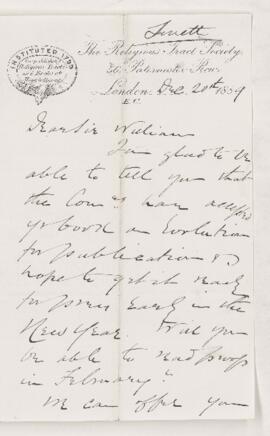 INSTITUTED 1799
The Religious Tract Society,
56, Paternoster Row,
London, Dec. 20th 1889
E.C.
Dear Sir William
I'm glad to be
able to tell you that
the Com have
book on Evolution
for publication & I
hope to get it ready
for press early in the
New Year. Will you
be able to read proofs
in February?
We can offer you